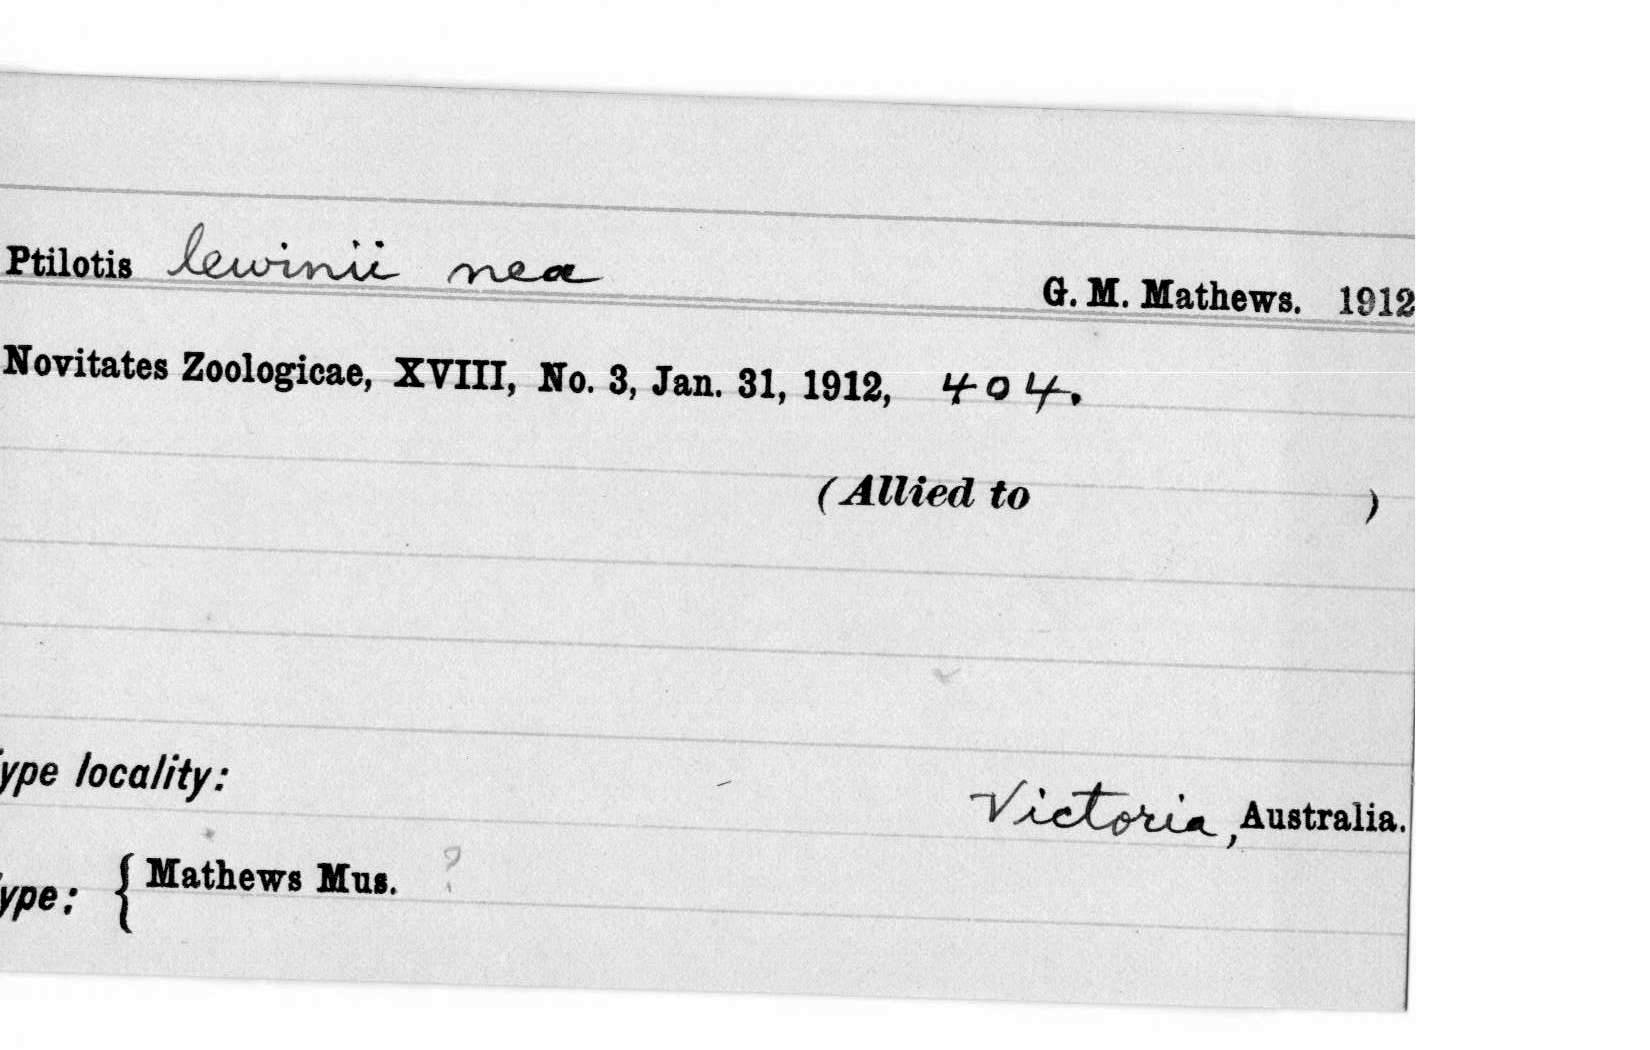 Ptilotis lewinii nea G. M. Mathews. 1912
Novitates Zoologicae, XVIII, No. 3, Jan. 31, 1912, 404.
(Allied to )
ype locality:
Victoria, Australia.
ype: { Mathews Mus. ?